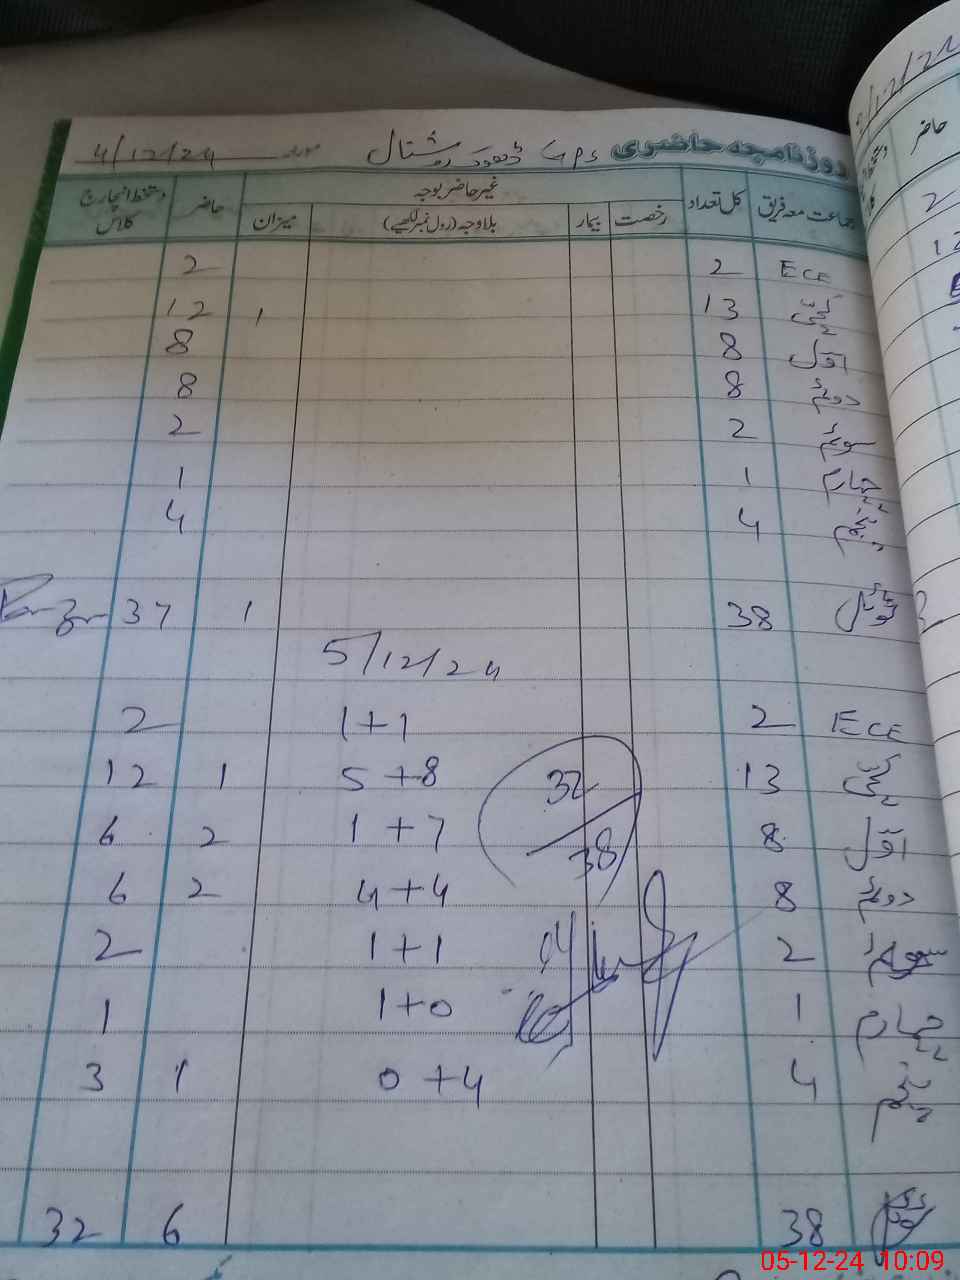 روزنامچہ حاضری GPS ڈھوک روشتال مورخہ 4/12/24
جماعت معہ فریق کل تعداد غیر حاضر بوجہ حاضر دستخط انچارج کلاس
رخصت بیمار بلاوجہ (رول نمبر لکھیے) میزان
ECE 2 2
کچی 13 1 12
اول 8 8
دوم 8 8
سوم 2 2
چہارم 1 1
پنجم 4 4
ٹوٹل 38 1 37
5/12/24
ECE 2 1+1 2
کچی 13 5+8 1 12
اول 8 1+7 2 6
32
38
دوم 8 4+4 2 6
سوم 2 1+1 2
چہارم 1 1+0 1
پنجم 4 0+4 1 3
38 6 32
05-12-24 10:09